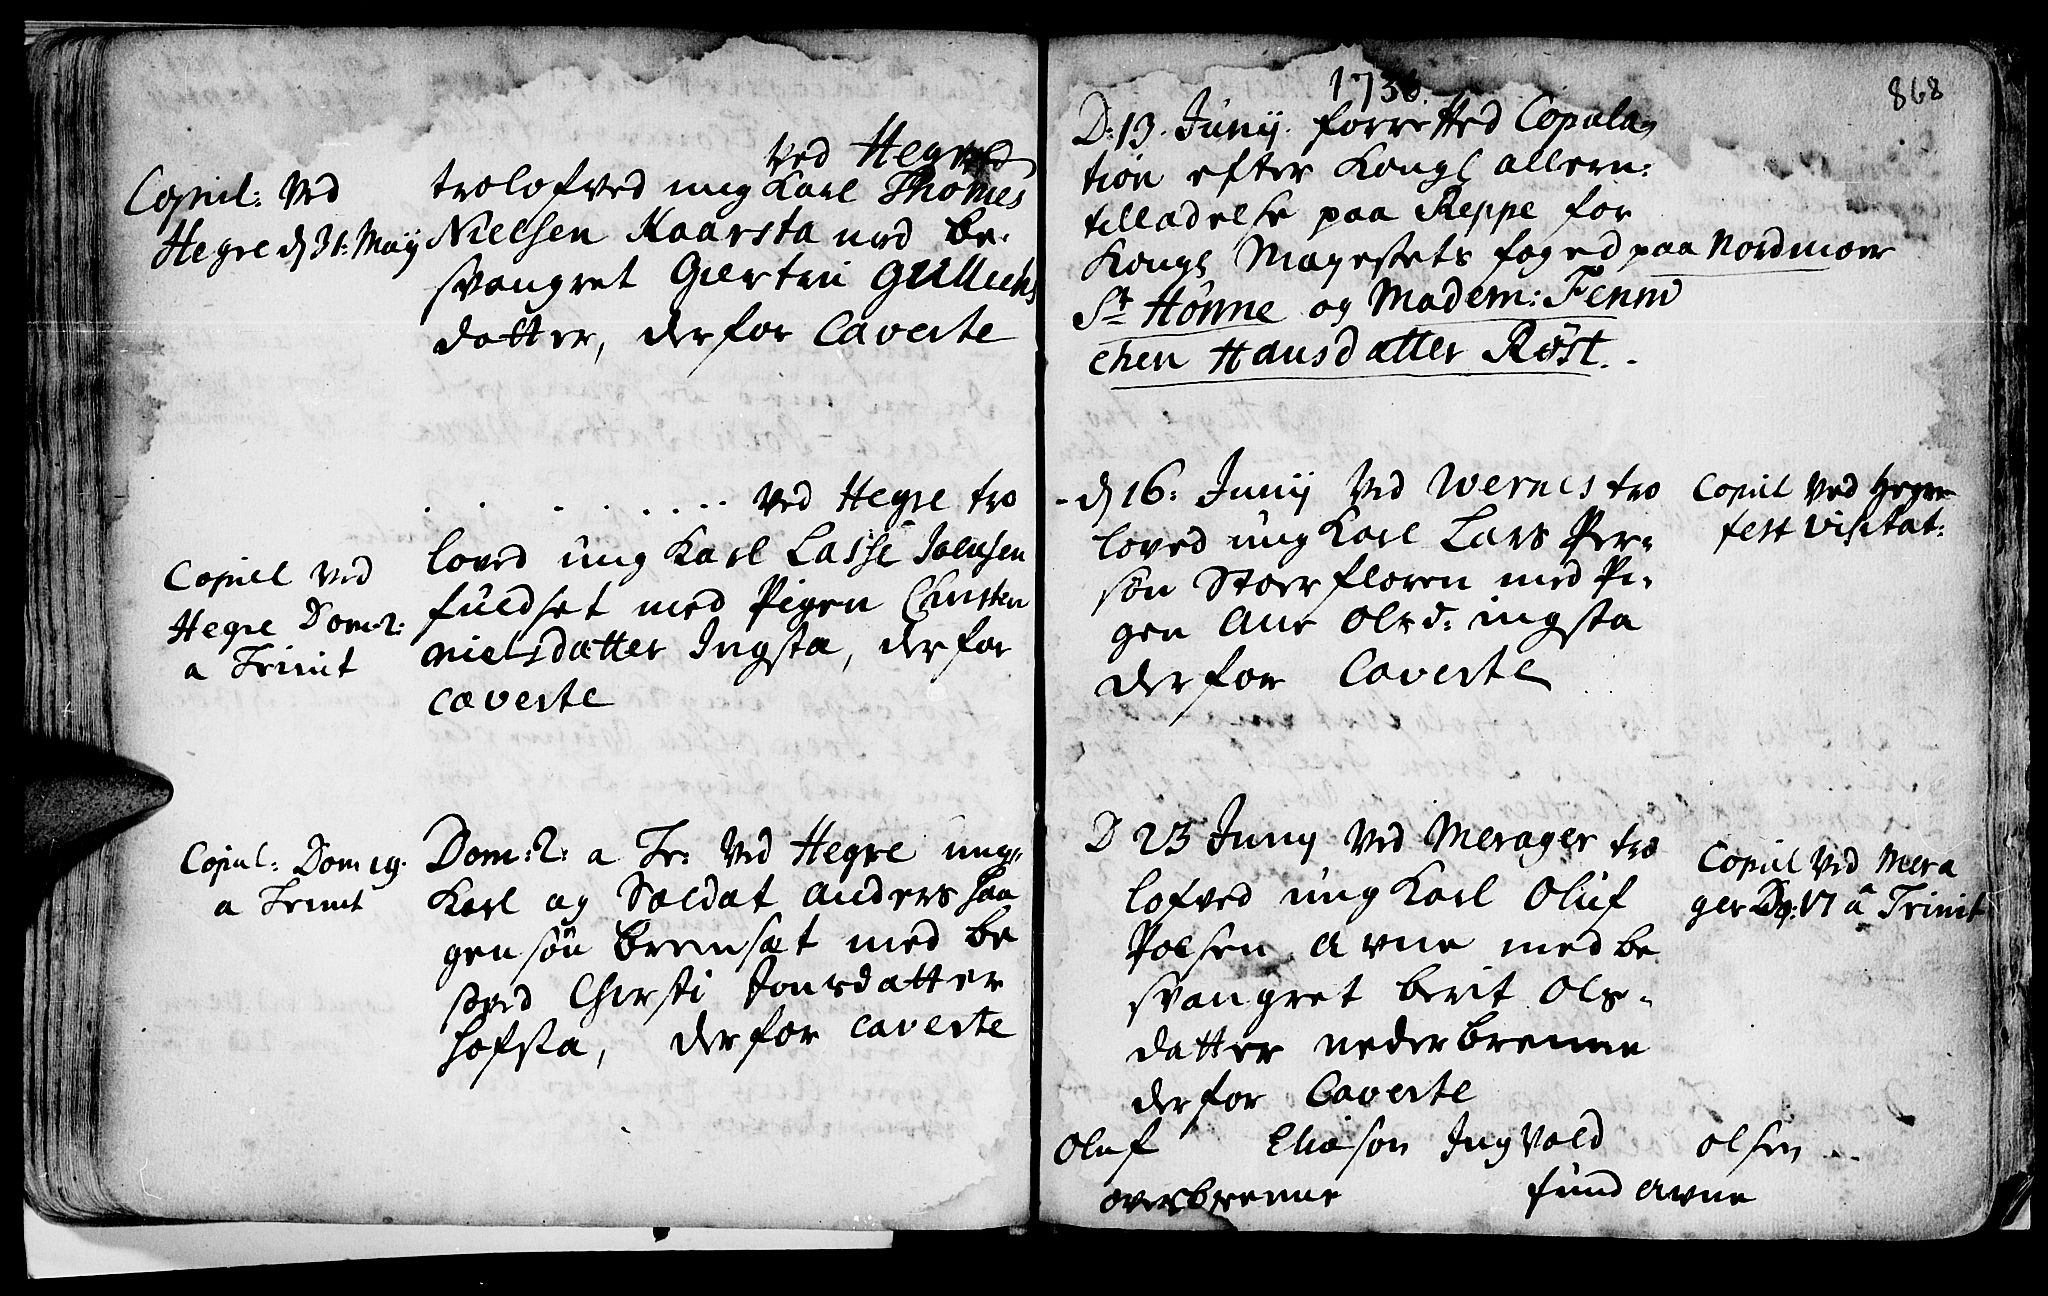 ved Hegre
Copul: ved
Hegre d 31: Maij
trolofved ung Karl Thomes
Nielsen Kaarsta med be-
svangret Giertru Gulleichs
datter, derfor Caverte
ved Hegre tro
Copull ved
Hegre Dom: 2:
a Trinit
loved ung Karl Lasse Joensen
fuldset med Pigen Christen
nielsdatter Ingsta, derfor
caverte
Copul: Dom 19.
a Trinit
Dom: 2: a Tr: ved Hegre ung
Karl og Soldat Anders Haa
gensøn Bremset med be
sved Chersti Jonsdatter
Hofsta, derfor caverte
1736.
868
D: 13. Junij. forretted Copula
tion efter Kongl allern:
tilladelse paa Reppe for
Kongl Mayestets foged paa Nordmør
Sr Hønne og Madem: Fenni
chen Hansdatter Røst.
d 16: Junij ved Wernes tro
loved ung Karl Lars Per-
søn Stoerfloren med Pi-
gen Ane Olsd: ingsta
derfor Caverte
Copul ved Hegre
fest visitat:
D 23 Junij ved Merager tro
lofved ung Karl Oluf
Polsen Avne med be
svangret berit Ols-
datter nederbrenne
derfor Caverte
Copul ved Mera
ger Do: 17 a Trinit
Oluf Eliæson Ingvold olsen
overbrenne fund Avne